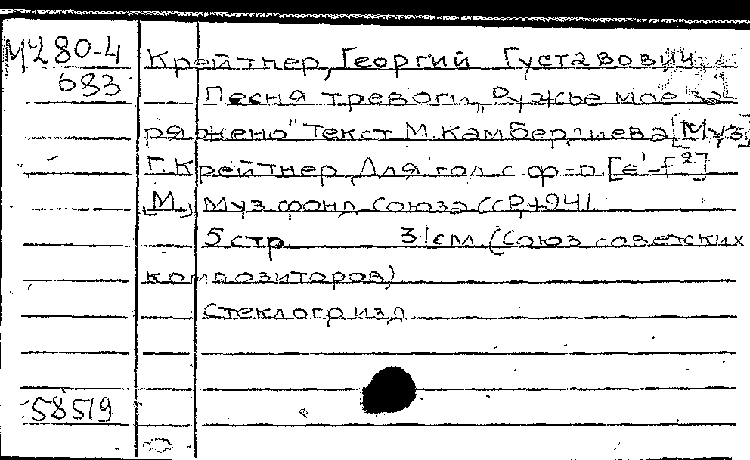 М280-4
683
Крейтнер, Георгий Густавович
Песня тревоги „Ружье мое за
ряжено" Текст М. Камбергиева [Муз]
Г. Крейтнер, Для гол с ф-п [e'-f²]
М., Муз.фонд Союза ССР, 1941
5 стр 31см. (Союз советских
композиторов)
Стеклогр изд
58519